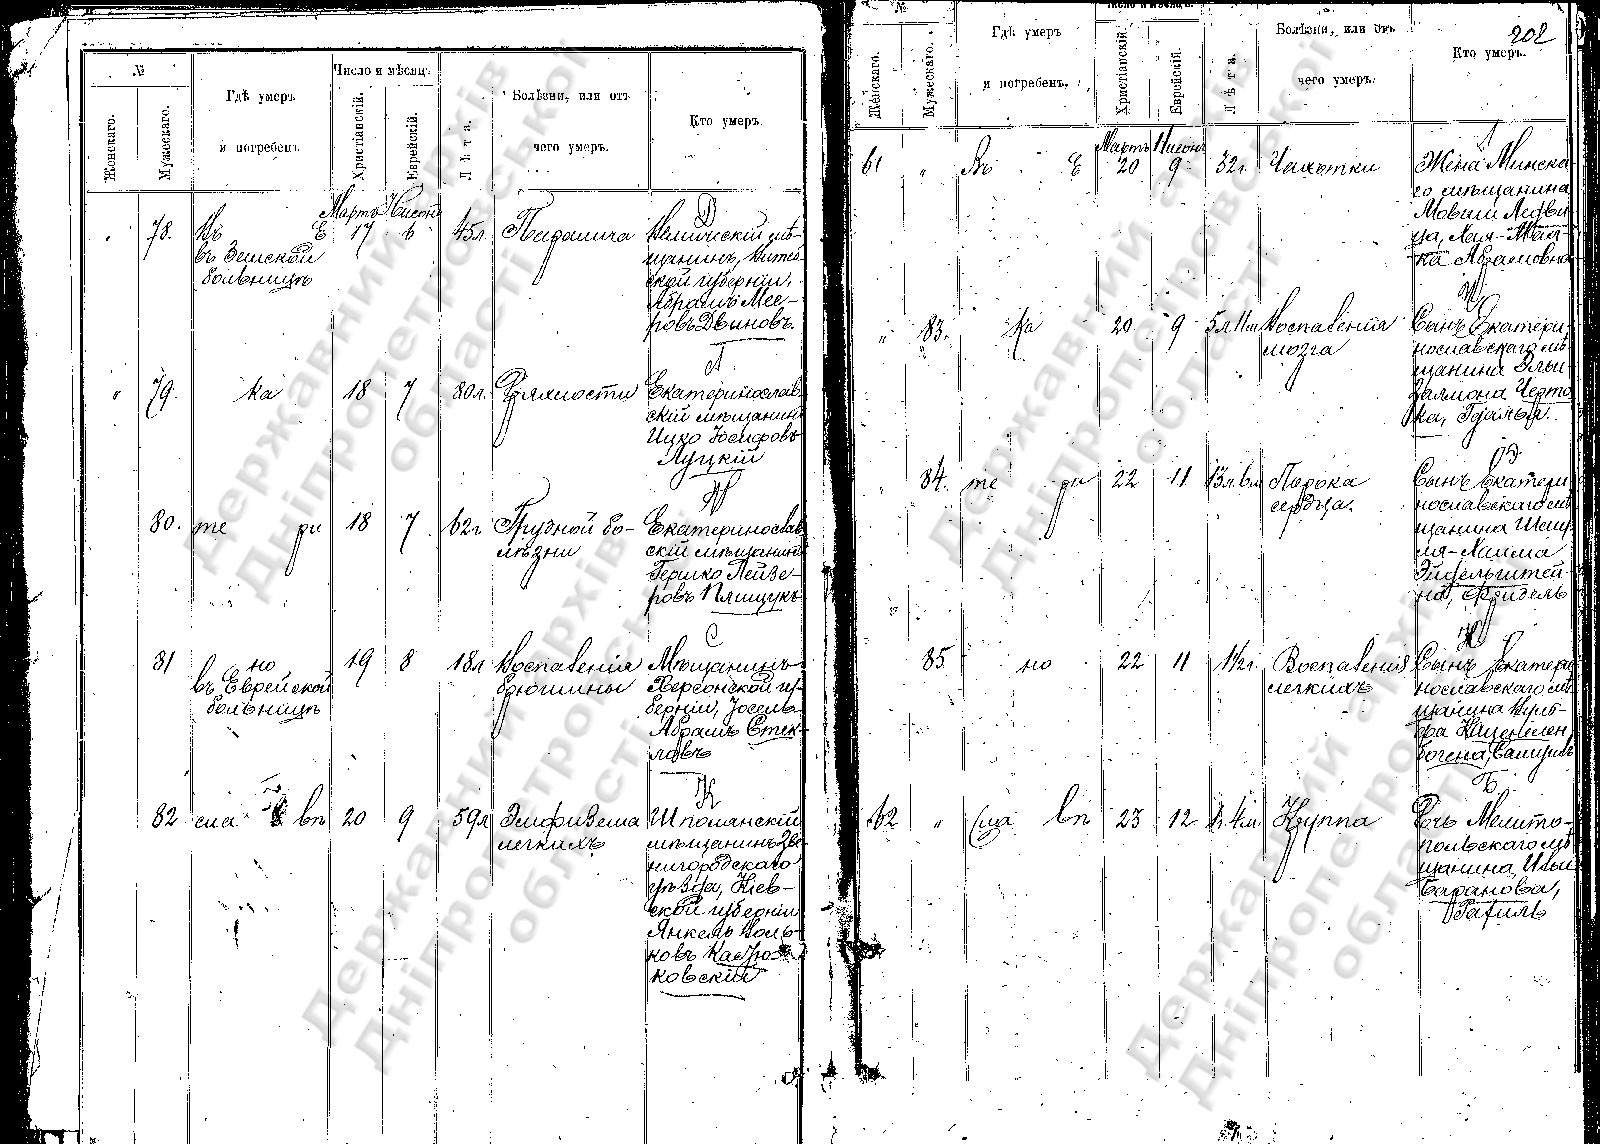 №
Женскаго.
Мужескаго.
Гдѣ умеръ
и погребенъ.
Число и мѣсяцъ.
Христіанскій.
Еврейскій.
Лѣта.
Болѣзни, или отъ
чего умеръ.
Кто умеръ.
Мартъ Нисонъ
78. Въ Е 17 6 45 л.
въ Земской
больницѣ
Д
щанинъ, Витеб-
ской губерніи,
Абрамъ Мее-
ровъ Двиновъ.
" 79. ка 18 7 80 л. Дряхлости
Л
Екатеринослав-
скій мѣщанинъ
Ицко Іосифовъ
Луцкій
80. те ри 18 7 62 г. Грудной бо-
лѣзни
Екатеринослав-
скій мѣщанинъ
Гершко Лейзе-
ровъ Плищукъ
81 но 19 8 18 л. Воспаленія
въ Еврейской брюшины
больницѣ
С
Мѣщанинъ
Херсонской гу-
берніи, Іосель
Абрамъ Стек-
ловъ
82 сла въ 20 9 59 л. Эмфизема
легкихъ
К
Шполянскій
мѣщанинъ Зве-
нигородскаго
уѣзда, Кіев-
ской губерніи
Янкель Воль-
ковъ
ковскій
202
№
Женскаго.
Мужескаго.
Гдѣ умеръ
и погребенъ.
Число и мѣсяцъ.
Христіанскій.
Еврейскій.
Лѣта.
Болѣзни, или отъ
чего умеръ.
Кто умеръ.
Мартъ Нисонъ
61 " Въ Е 20 9 32 г. Чахотки
Жена Минска-
го мѣщанина
Мовши Медви-
Абрамовна
" 83. ка 20 9 5 л 11 м Воспаленія
мозга
Сынъ Екатери-
нославскаго мѣ-
щанина Эльи-
Залмона Черто-
ка,
84. те ри 22 11 13 л. 6 м Порока
сердца.
Сынъ Екатери-
нославскаго мѣ-
щанина Шму-
ля-Хаима
Эйдельштей-
на, Фойдель
85 но 22 11 1½ г. Воспаленія
легкихъ
Сынъ Екатери-
нославскаго мѣ-
щанина Вуль-
фа Каценелен-
богена, Самуилъ
62 " Сла въ 23 12 Круппа
Б
Дочь Мелито-
польскаго мѣ-
щанина Ильи
Баранова,
Рахиль
Державний архів
Дніпропетровської
області